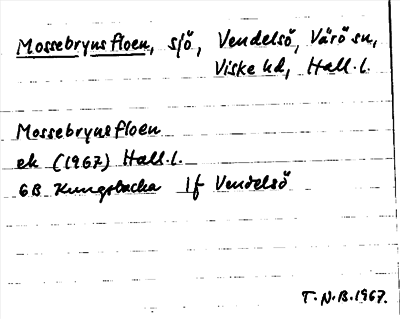 Mossebrynsfloen, sjö, Vendelsö, Värö sn,
Viske hd, Hall.l.
Mossebrynsfloen
ek (1967) Hall.l.
6B Kungsbacka lf Vendelsö
T.N.B.1967.